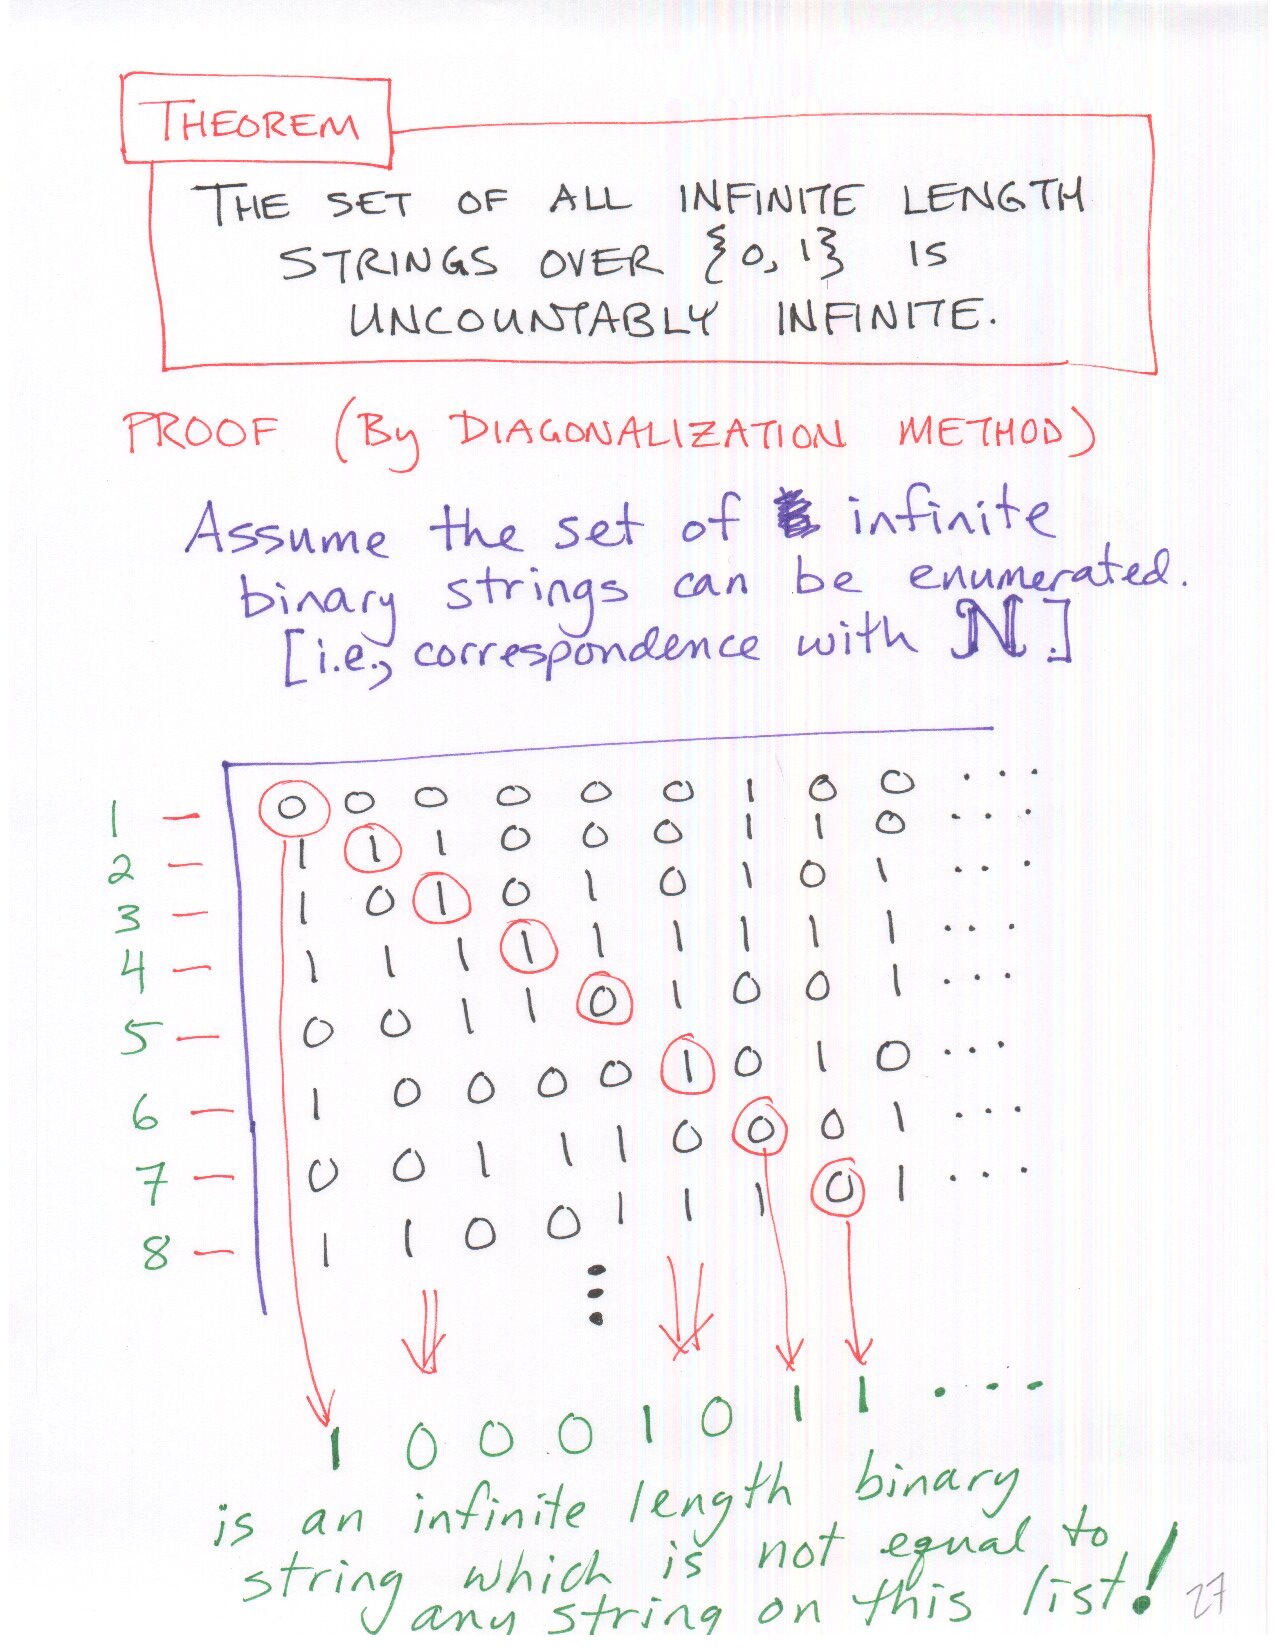 THEOREM
THE SET OF ALL INFINITE LENGTH
STRINGS OVER {0, 1} IS
UNCOUNTABLY INFINITE.
PROOF (By DIAGONALIZATION METHOD)
Assume the set of infinite
binary strings can be enumerated.
[i.e., correspondence with ℕ.]
1 – 0 0 0 0 0 0 1 0 0 ...
2 – 1 1 1 0 0 0 1 1 0 ...
3 – 1 0 1 0 1 0 1 0 1 ...
4 – 1 1 1 1 1 1 1 1 1 ...
5 – 0 0 1 1 0 1 0 0 1 ...
6 – 1 0 0 0 0 1 0 1 0 ...
7 – 0 0 1 1 1 0 0 0 1 ...
8 – 1 1 0 0 1 1 1 0 1 ...
1 0 0 0 1 0 1 1 ...
is an infinite length binary
string which is not equal to
any string on this list!
27